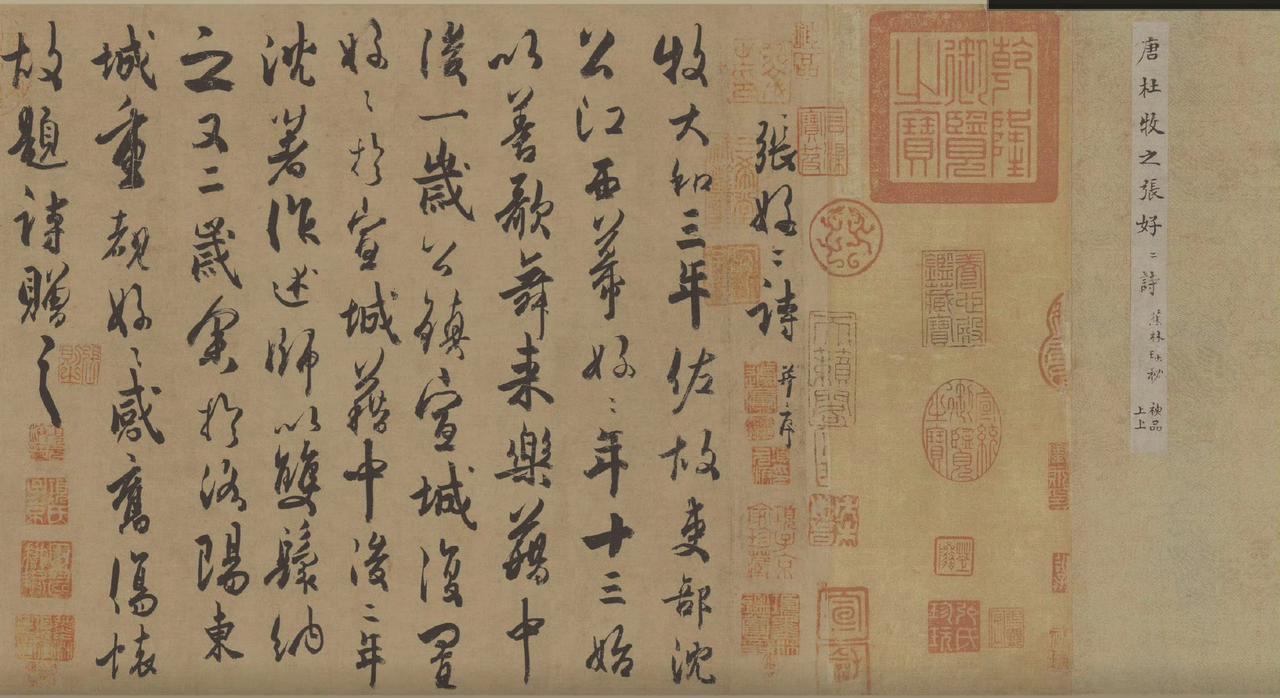 唐杜牧之張好〻詩 蕉林珎秘 神品上上
乾隆御覽之寶
養心殿鑑藏寶
宣統御覽之寶
天籟閣
張好〻詩 并序
牧大和三年佐故吏部沈
公江西幕好〻年十三始
以善歌舞来樂藉中
後一歲公鎮宣城復置
好〻於宣城藉中後二年
沈著作述師以雙鬟納
之又二歲余於洛陽東
城重覩好〻感舊傷懷
故題詩贈之